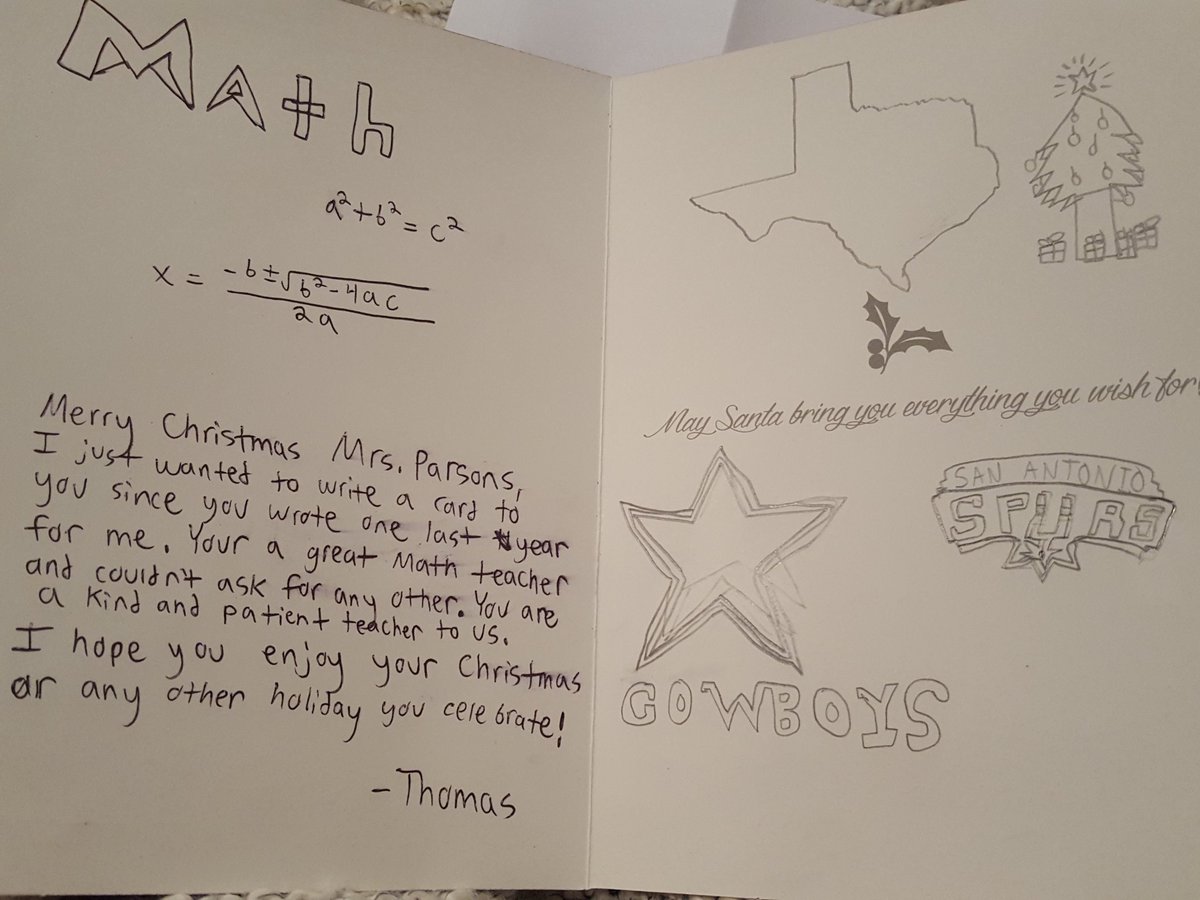 Math
a²+b²=c²
x = -b±√b²-4ac
2a
Merry Christmas Mrs. Parsons,
I just wanted to write a card to
you since you wrote one last year
for me. Your a great Math teacher
and couldn't ask for any other. You are
a kind and patient teacher to us.
I hope you enjoy your Christmas
or any other holiday you celebrate!
-Thomas
May Santa bring you everything you wish for!
SAN ANTONIO
SPURS
COWBOYS